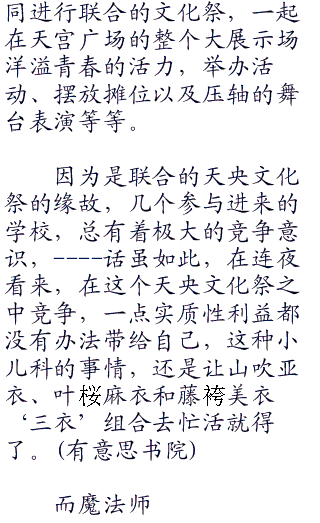 同进行联合的文化祭，一起
在天宫广场的整个大展示场
洋溢青春的活力，举办活
动、摆放摊位以及压轴的舞
台表演等等。
因为是联合的天央文化
祭的缘故，几个参与进来的
学校，总有着极大的竞争意
识，----话虽如此，在连夜
看来，在这个天央文化祭之
中竞争，一点实质性利益都
没有办法带给自己，这种小
儿科的事情，还是让山吹亚
衣、叶桜麻衣和藤袴美衣
‘三衣’ 组合去忙活就得
了。(有意思书院)
而魔法师